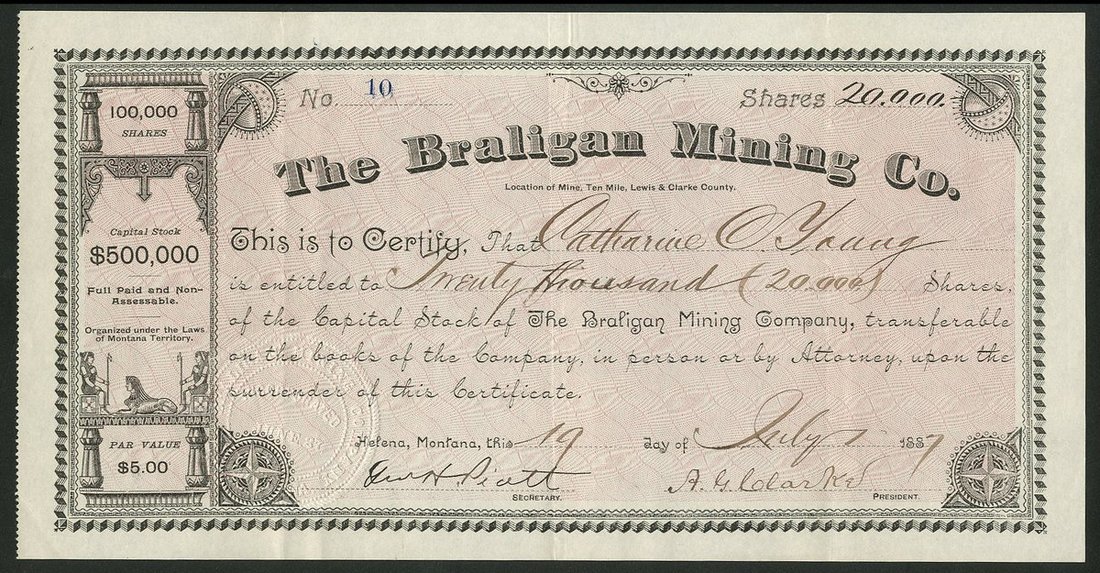 No. 10
Shares 20.000.
100,000
SHARES
The Braligan Mining Co.
Location of Mine, Ten Mile, Lewis & Clarke County.
Capital Stock
$500,000
Full Paid and Non-
Assessable.
Organized under the Laws
of Montana Territory.
PAR VALUE
$5.00
This is to Certify, That Catharine O. Young
is entitled to Twenty thousand (20.000) Shares,
of the Capital Stock of The Braligan Mining Company, transferable
on the books of the Company, in person or by Attorney, upon the
surrender of this Certificate.
Helena, Montana, this 19 day of July 1887
Piatt
SECRETARY.
A. G. Clarke
PRESIDENT.